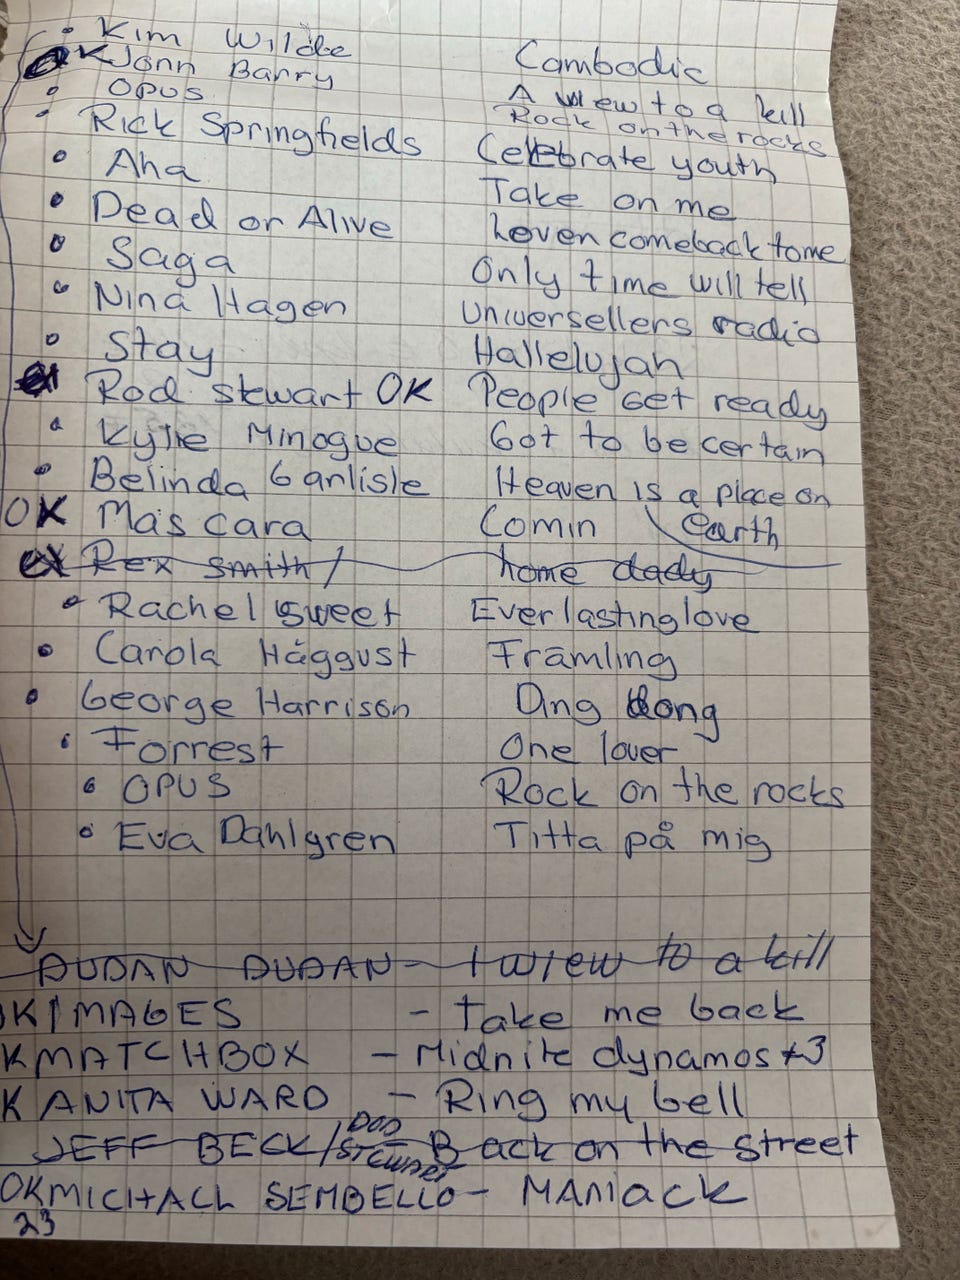 Kim Wilde Cambodic
OK John Barry A view to a kill
Opus Rock on the rocks
Rick Springfields Celebrate youth
Aha Take on me
Dead or Alive Loven comeback tome
Saga Only time will tell
Nina Hagen Universellers radio
Stay Hallelujah
Rod Stewart OK People Get ready
Kylie Minogue Got to be certain
Belinda Carlisle Heaven is a place on earth
OK Mascara Comin
Rex Smith / home dady
Rachel sweet Everlasting love
Carola Häggust Främling
George Harrison Ding dong
Forrest One lover
OPUS Rock on the rocks
Eva Dahlgren Titta på mig
DUDAN DUDAN - A wiew to a kill
OK IMAGES - Take me back
K MATCHBOX - Midnite dynamos +3
K ANITA WARD - Ring my bell
JEFF BECK / ROD STEWART Back on the street
OK MICHALL SEMBELLO - MANIack
23